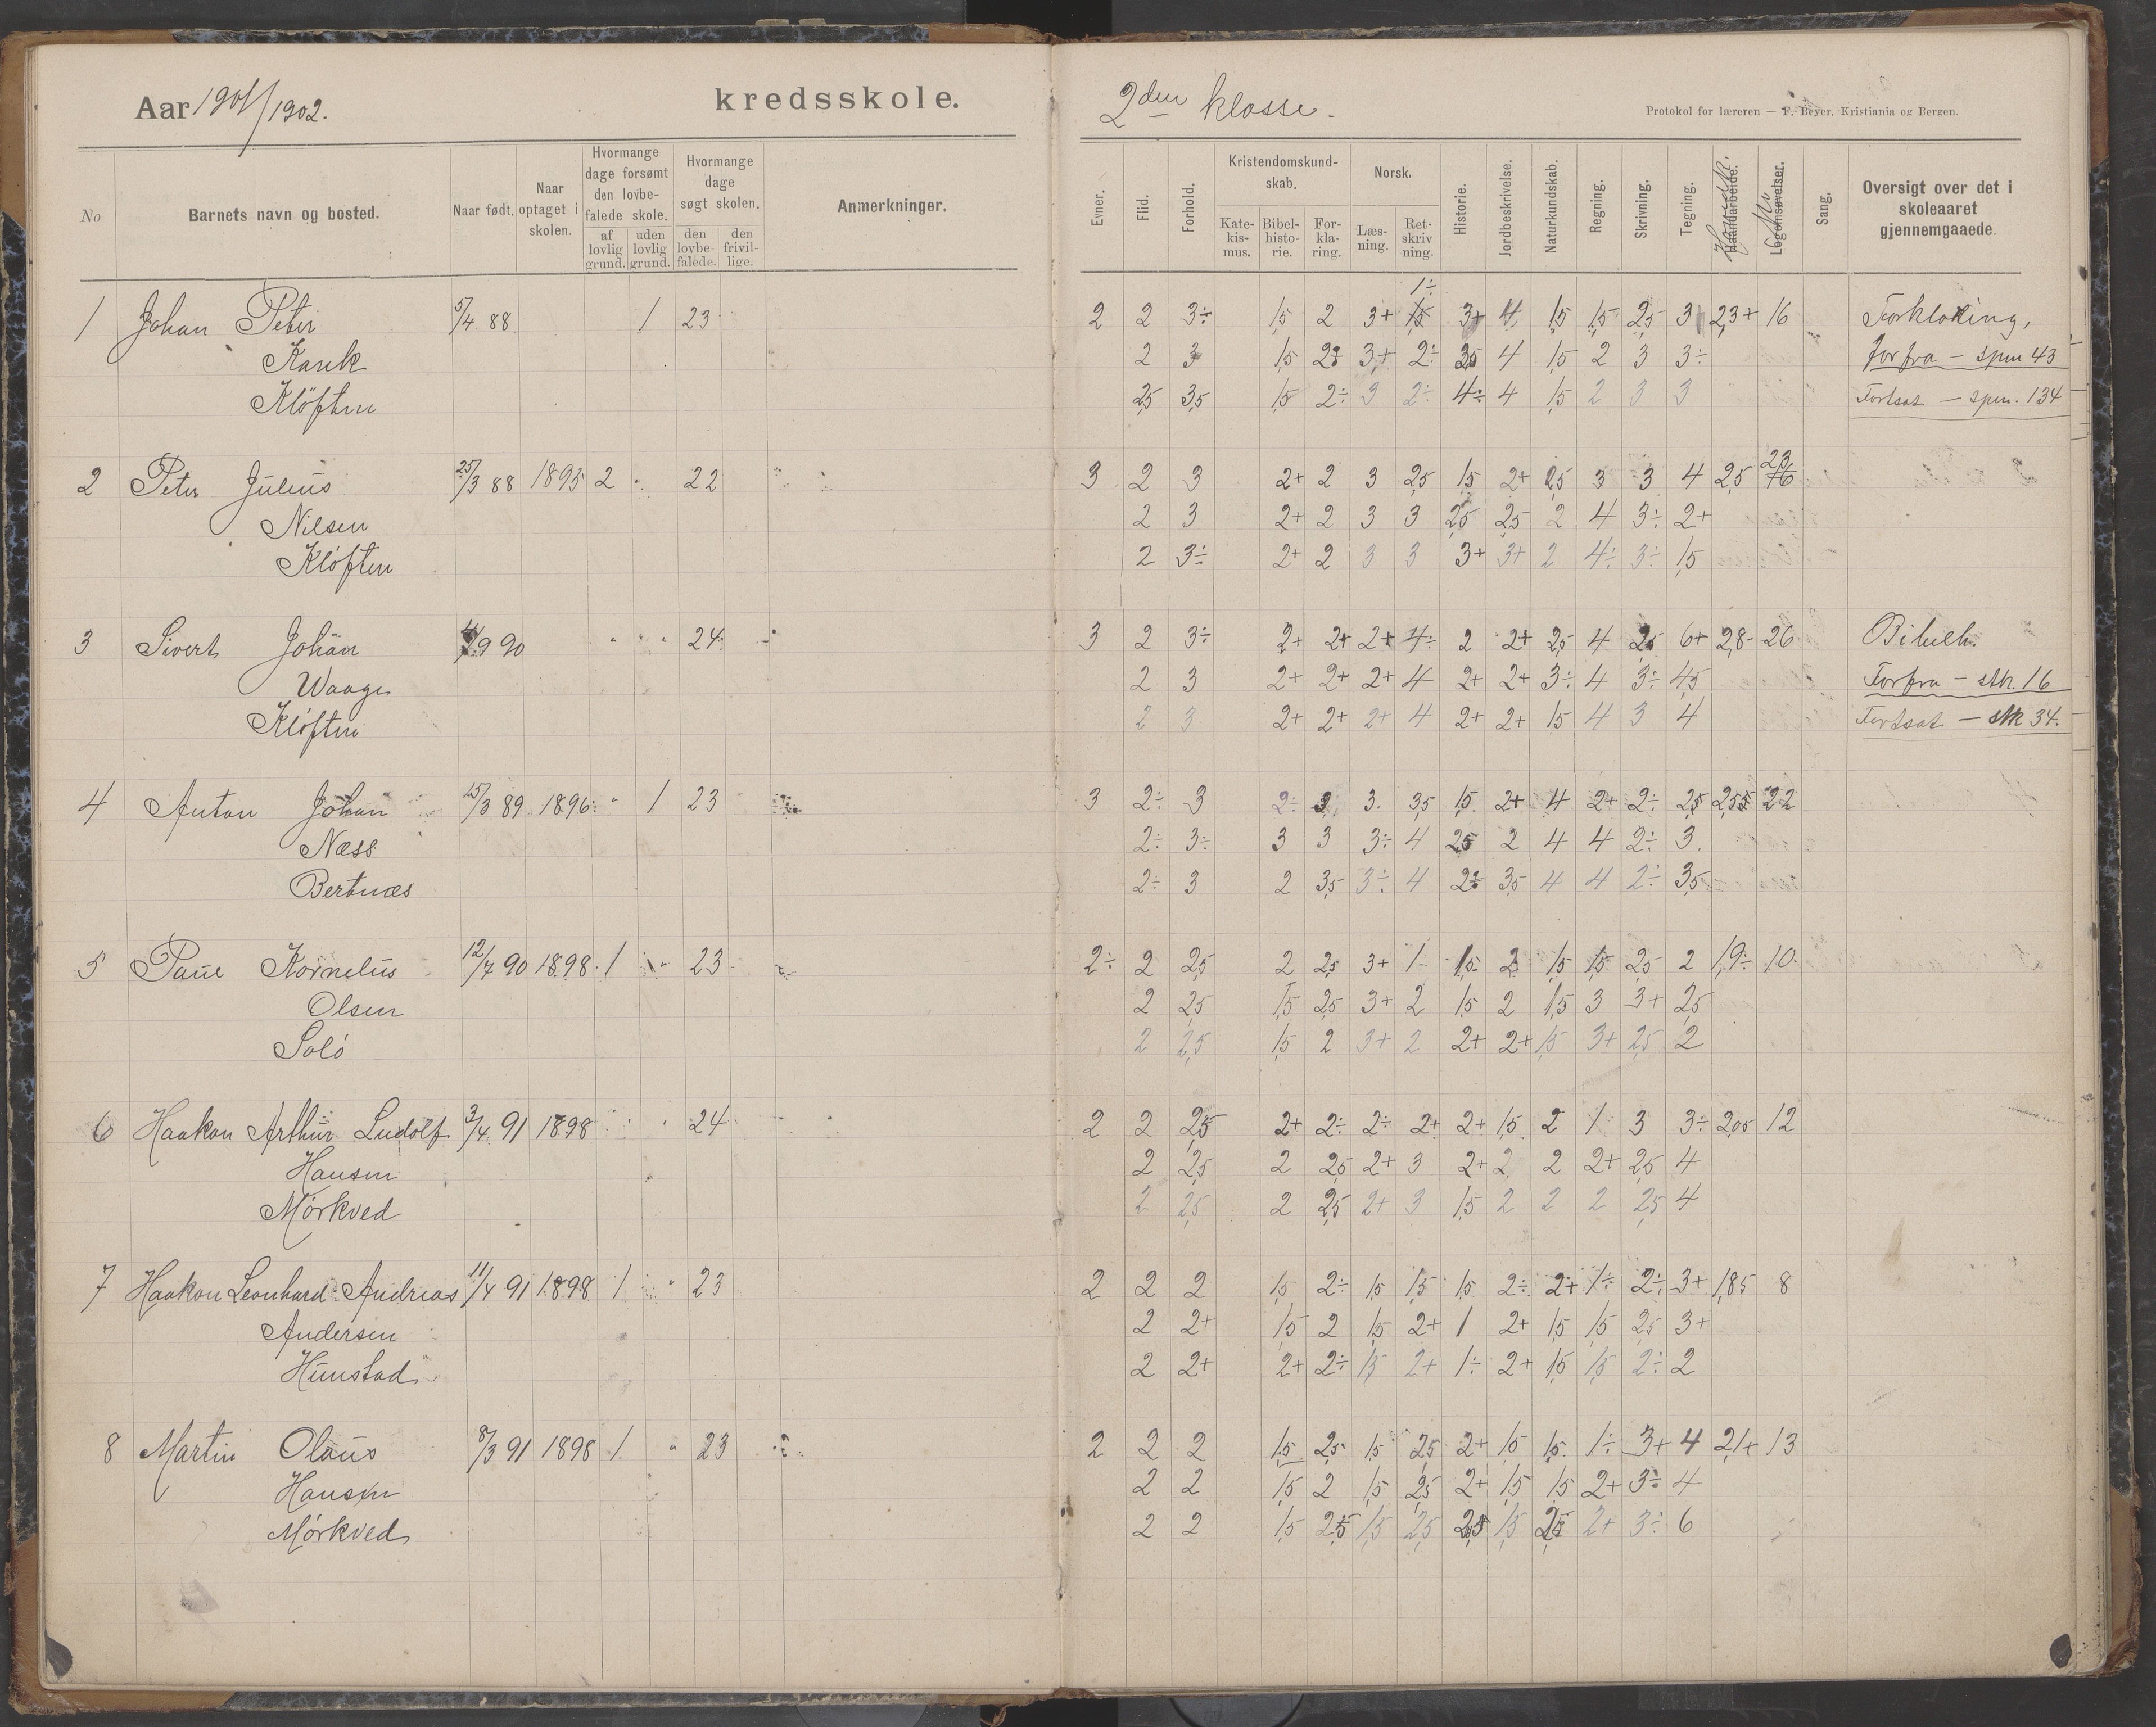 Aar 1901/1902. kredsskole.
2den klasse.
Protokol for læreren — F. Beyer, Kristiania og Bergen.
No
Barnets navn og bosted.
Naar født.
Naar optaget i skolen.
Hvormange dage forsømt den lovbefalede skole.
af lovlig grund.
uden lovlig grund.
Hvormange dage søgt skolen.
den lovbefalede.
den frivillige.
Anmerkninger.
Evner.
Flid.
Forhold.
Kristendomskundskab.
Katekismus.
Bibelhistorie.
Forklaring.
Norsk.
Læsning.
Retskrivning.
Historie.
Jordbeskrivelse.
Naturkundskab.
Regning.
Skrivning.
Tegning.
Haandarbeide.
Legemsøvelser.
Sang.
Oversigt over det i skoleaaret gjennemgaaede.
1 Johan Peter 5/4 88 1 23 2 2 3÷ 1,5 2 3+ 1÷ 3+ 4 1,5 1,5 2,5 3 2,3+ 16 Forklaring,
2 3 1,5 2÷ 3+ 2÷ 3,5 4 1,5 2 3 3÷ Forfra — spm 43
Kløften 2,5 3,5 1,5 2÷ 3 2÷ 4÷ 4 1,5 2 3 3 Fortsat — spm. 134
2 Peter Julius 25/3 88 1895 2 " 22 3 2 3 2+ 2 3 2,5 1,5 2+ 2,5 3 3 4 2,5 23
Nilsen 2 3 2+ 2 3 3 2,5 2,5 2 4 3÷ 2+
Kløften 2 3÷ 2+ 2 3 3 3+ 3+ 2 4÷ 3÷ 1,5
3 Sivert Johan 9 90 " " " 24 3 2 3÷ 2+ 2+ 2+ 4÷ 2 2+ 2,5 4 2,5 6+ 2,8 26 Bibelh.
Waage 2 3 2+ 2+ 2+ 4 2+ 2+ 3÷ 4 3÷ 4,5 Forfra — stk. 16
Kløften 2 3 2+ 2+ 2+ 4 2+ 2+ 1,5 4 3 4 Fortsat — stk 34.
4 Anton Johan 15/3 89 1896 " 1 23 3 2÷ 3 2÷ 3 3 3,5 1,5 2+ 4 2+ 2÷ 2,5 2,55 22
Næss 2÷ 3÷ 3 3 3÷ 4 2,5 2 4 4 2÷ 3
Bertnæs 2÷ 3 2 3,5 3÷ 4 2÷ 3,5 4 4 2÷ 3,5
5 Paul Kornelius 12/7 90 1898 1 " " 23 2÷ 2 2,5 2 2,5 3+ 1 1,5 2 1,5 1,5 2,5 2 1,9÷ 10
Olsen 2 2,5 1,5 2,5 3+ 2 1,5 2 1,5 3 3+ 2,5
Solø 2 2,5 1,5 2 3+ 2 2+ 2+ 1,5 3+ 2,5 2
6 Haakon Arthur Ludolf 3/4 91 1898 " " 24 2 2 2,5 2+ 2÷ 2÷ 2+ 2+ 1,5 2 1 3 3÷ 2,05 12
Hansen 2 2,5 2 2,5 2+ 3 2+ 2 2 2+ 2,5 4
Mørkved 2 2,5 2 2,5 2+ 3 1,5 2 2 2 2,5 4
7 Haakon Leonhard Andreas 11/4 91 1898 1 " " 23 2 2 2 1,5 2÷ 1,5 1,5 1,5 2÷ 2+ 1÷ 2÷ 3+ 1,85 8
Andersen 2 2+ 1,5 2 1,5 2+ 1 2+ 1,5 1,5 2,5 3+
Hunstad 2 2+ 2+ 2÷ 1,5 2+ 1÷ 2+ 1,5 1,5 2÷ 2
8 Martin Olaus 8/3 91 1898 1 " 23 2 2 2 1,5 2,5 1,5 2,5 2+ 1,5 1,5 1÷ 3+ 4 2,1+ 13
Hansen 2 2 1,5 2 1,5 2,5 2+ 1,5 1,5 2+ 3÷ 4
Mørkved 2 2 1,5 2,5 1,5 2,5 2,5 1,5 2,5 2+ 3÷ 6